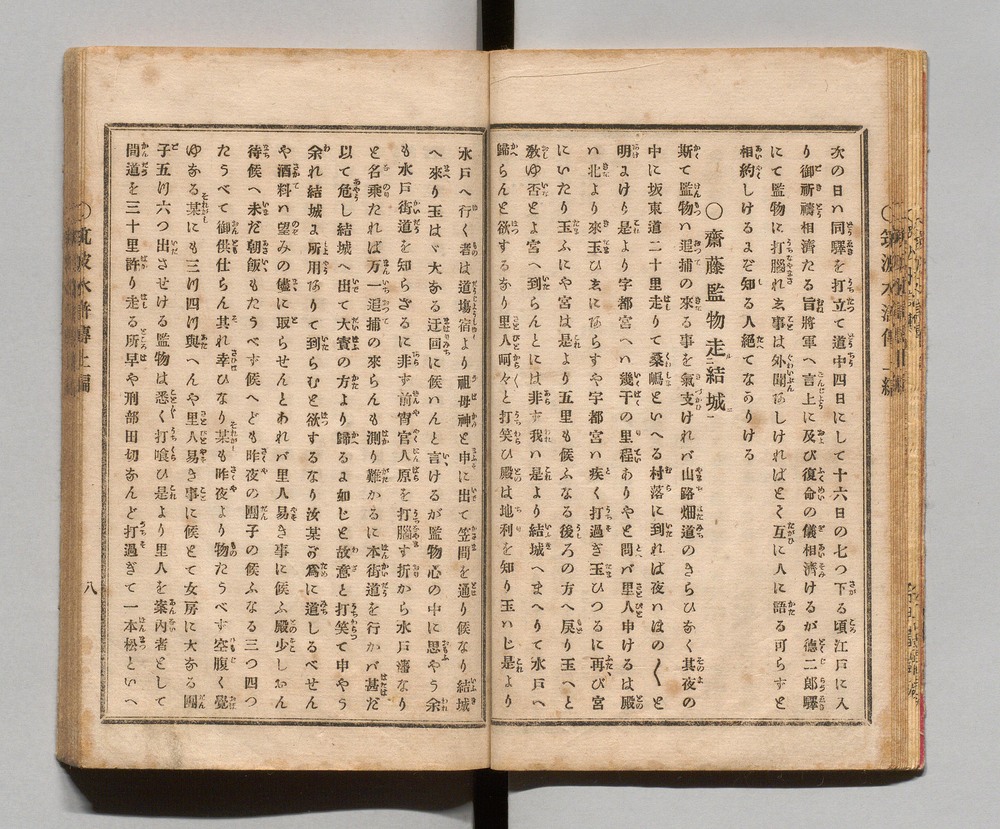 次の日ハ同驛を打立て道中四日にして十六日の七つ下る頃江戸に入
り御祈禱相濟たる旨將軍へ言上に及び復命の儀相濟けるが德二郎驛
にて監物に打腦れゑ事は外聞あしければとく互に人に語る可らずと
相約しけるゟぞ知る人絕てなありける
〇齋藤監物走結城
斯て監物ハ追捕の來る事を氣支けれバ山路畑道のきらひなく其夜の
中に坂東道二十里走りて桑嶋といへる村落に到れば夜ハほの〲と
明ゟけり是より宇都宮へハ幾干の里程ありやと問バ里人申けるは殿
ハ北より來玉ひゑにあらすや宇都宮ハ疾く打過ぎ玉ひつるに再び宮
にいたり玉ふにや宮は是より五里も候ふなる後ろの方へ戾り玉へと
敎ゆ否とよ宮へ到らんとには非す我ハ是より結城へまへりて水戸へ
歸らんと欲するなり里人呵々と打笑ひ殿は地利を知り玉ハじ是より
水戸へ行く者は道塲宿より祖母神と申に出て笠間を通り候なり結城
へ來り玉はゞ大ある迂回に候ハんと言けるが監物心の中に思やう余
も水戸街道を知らざるに非す前宵官人原を打腦す折から水戸藩なり
と名乘たれば万一追捕の來らんも測り難かるに本街道を行かバ甚だ
以て危し結城へ出て大寳の方より歸るゟ如じと故意と打笑て申やう
余れ結城ゟ所用ありて到らむと欲するなり汝某が爲に道しるべせん
や酒料ハ望みの儘に取らせんとあれバ里人易き事に候ふ殿少しおん
待候へ未だ朝飯もたうべす候へども昨夜の團子の候ふなる三つ四つ
たうべて御供仕らん其れ幸ひなり某も昨夜より物たうべす空腹く覺
ゆある某にも三ケ四ケ與へんや里人易き事に候とて女房に大ある團
子五ケ六つ出させける監物は悉く打喰ひ是より里人を案內者として
間道を三十里許り走る所早や刑部田切あんど打過ぎて一本松といへ
八